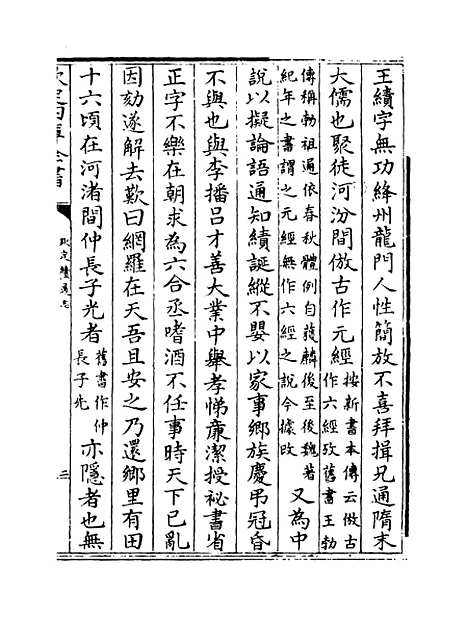 王績字無功絳州龍門人性簡放不喜拜揖兄通隋末
大儒也聚徒河汾間倣古作元經按新書本傳云倣古
作六經攷舊書王勃
傳稱勃祖通依春秋體例自獲麟後至後魏著
紀年之書謂之元經無作六經之說今據改又為中
說以擬論語通知績誕縱不嬰以家事鄉族慶弔冠昏
不與也與李播呂才善大業中舉孝悌亷潔授祕書省
正字不樂在朝求為六合丞嗜酒不任事時天下已亂
因劾遂解去歎曰網羅在天吾且安之乃還鄉里有田
十六頃在河渚間仲長子光者舊書作仲
長子先亦隱者也無
欽定四庫全書
欽定續通志
三